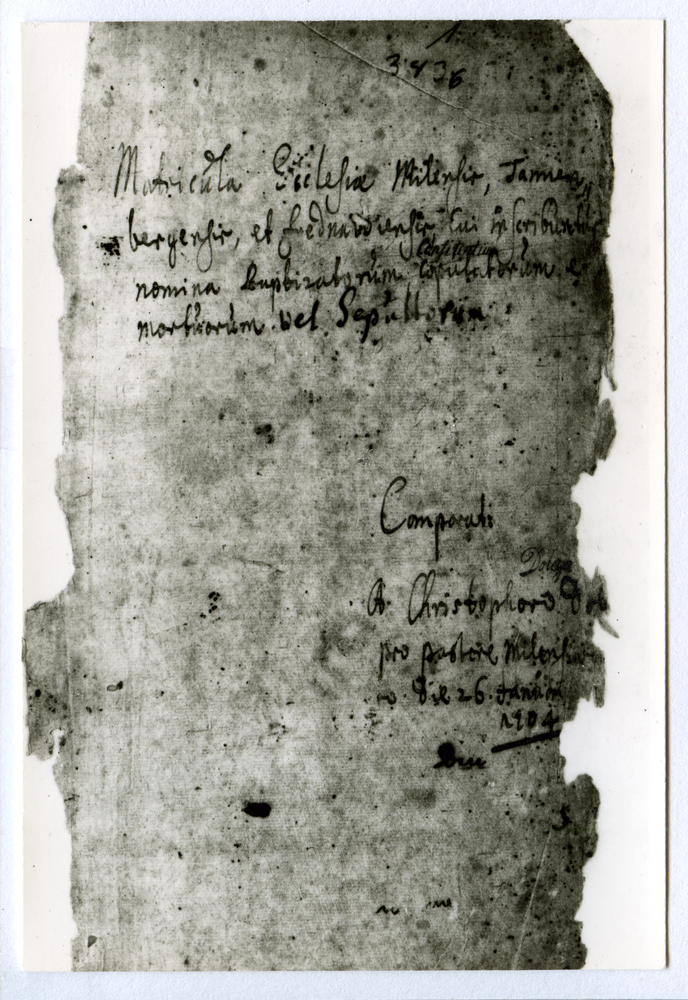 1.
3436
Matricula Ecclesiæ Milensis, Tannen„
bergensis, et cui inscribuntur
nomina baptizatorum copulatorum et
mortuorum vel Sepultorum
Comparati
A Christophoro
pro pastore Milensi
die 26. Januarii
1704